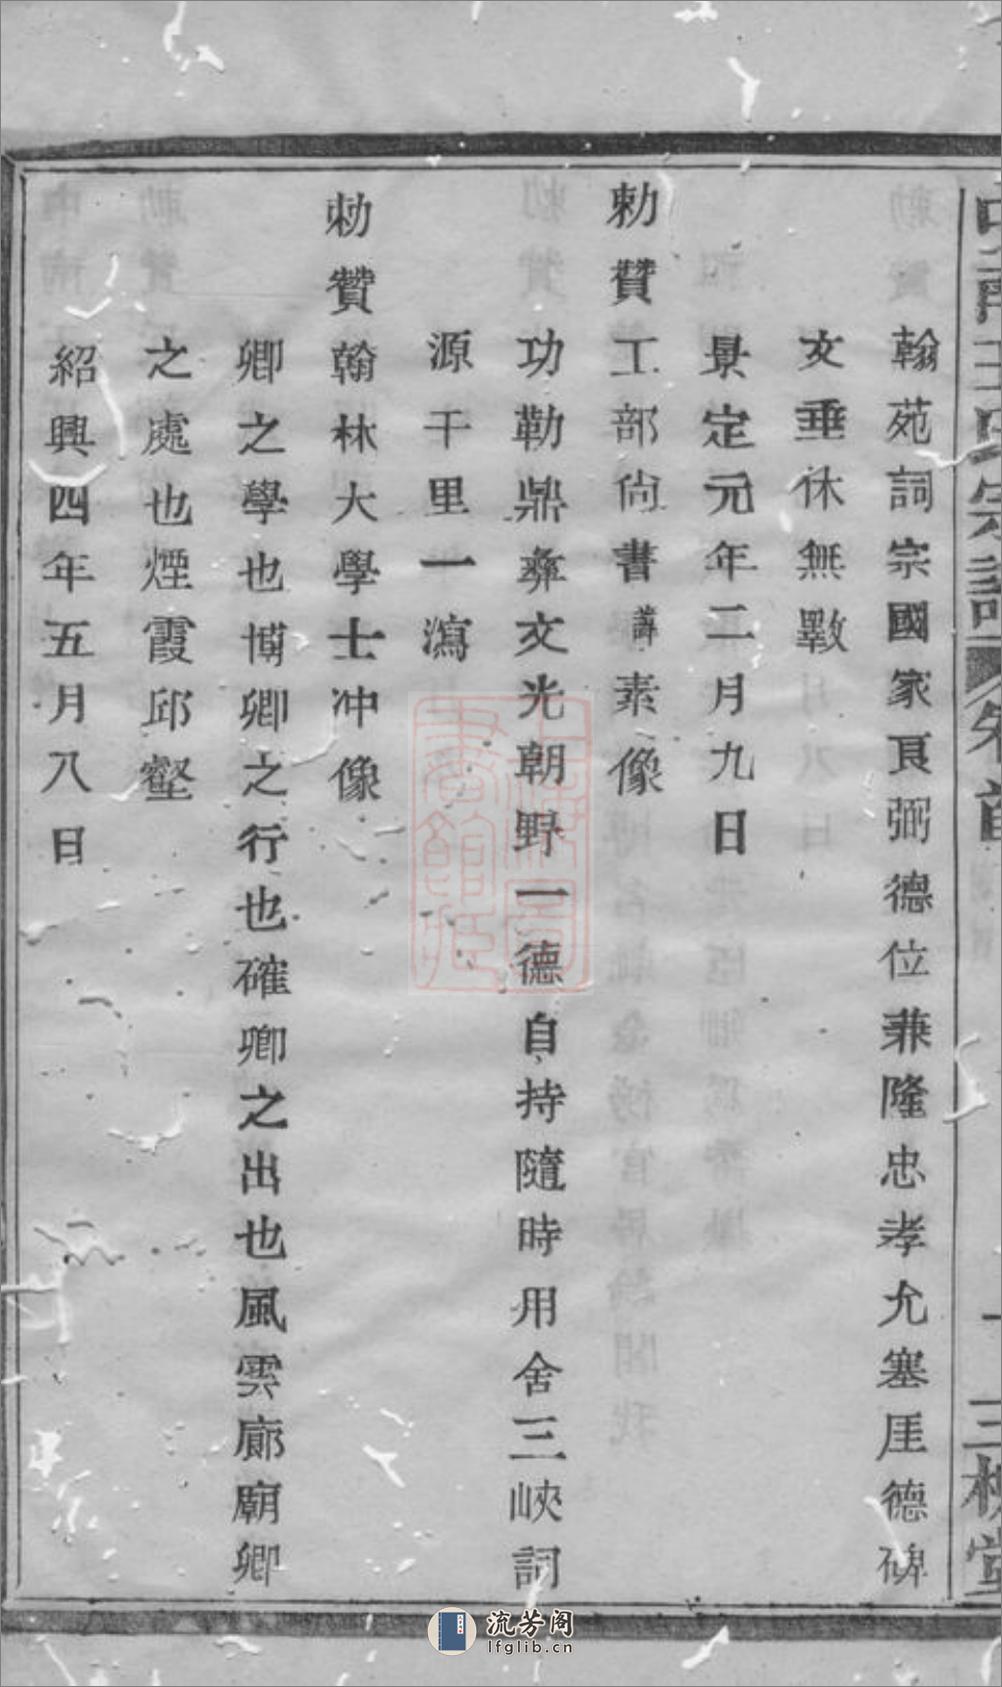 翰苑詞宗國家良弼德位兼隆忠孝允塞厓德碑
文垂休無斁
景定元年二月九日
勅贊工部尙書 素像
功勒鼎彝文光朝野一德自持隨時用舍三峽詞
源千里一瀉
勅贊翰林大學士冲像
卿之學也博卿之行也確卿之出也風雲廊廟卿
之處也煙霞邱壑
紹興四年五月八日
王氏宗譜 卷首 一 三槐堂
上海圖書館藏
流芳阁
lfglib.cn